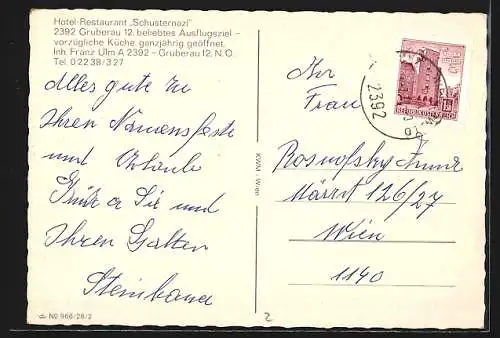 Hotel-Restaurant „Schusternazl"
2392 Gruberau 12, beliebtes Ausflugsziel –
vorzügliche Küche, ganzjährig geöffnet.
Inh. Franz Ulm A 2392 – Gruberau 12, N.Ö.
Tel. 0 22 38/3 27
Alles gute zu
Ihren Namensfeste
und Urlaube
Grüße a Sie und
Ihren Gatten
Steinbauer
An
Frau
Rosnofsky Anna
126/27
Wien
1140
2392
REPUBLIK ÖSTERREICH
KWM - Wien
№ 966/28/2
2